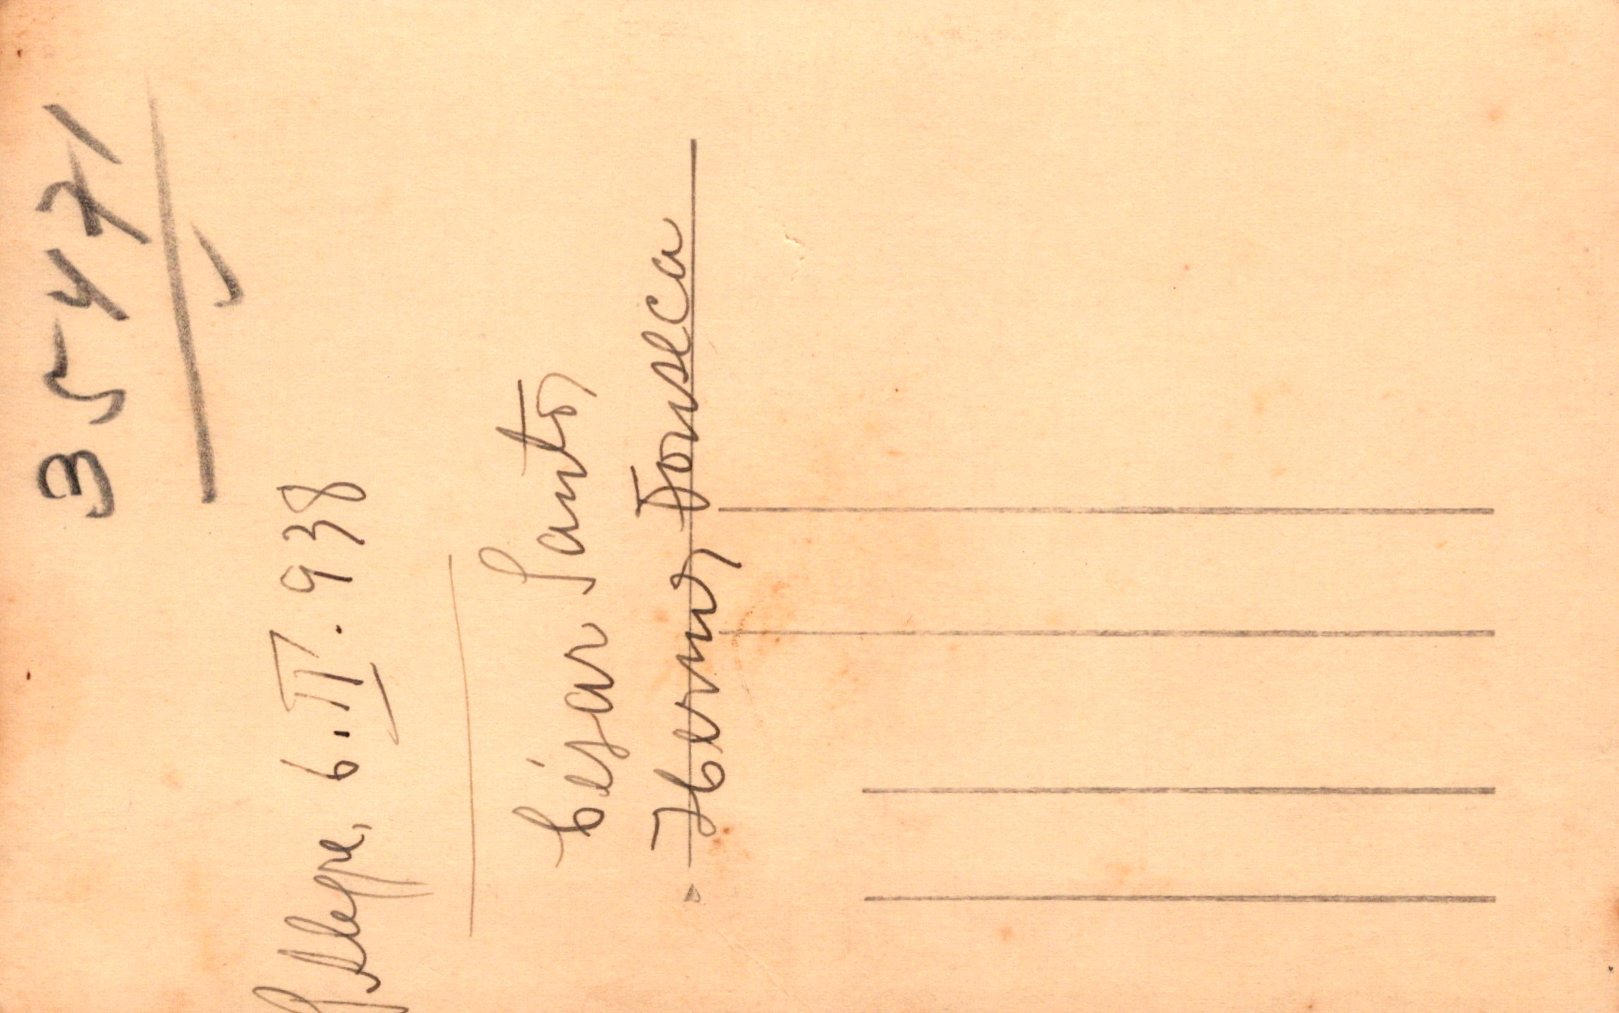 35471
P. Alegre, 6.II.938
César Santos,
Hermes Fonseca